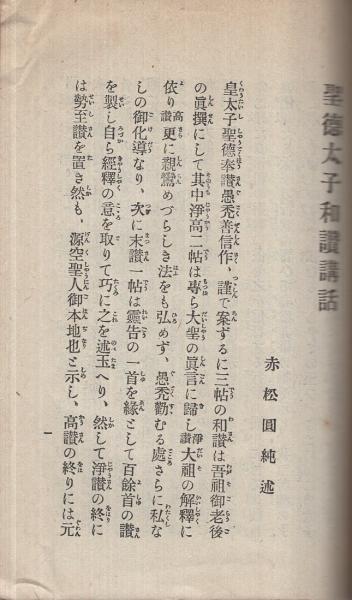 聖德太子和讃講話
赤松圓純述
皇太子聖德奉讃愚禿善信作、謹で案ずるに三帖の和讃は吾祖御老後
の眞撰にして其中淨高二帖は專ら大聖の眞言に歸し淨讃大祖の解釋に
依り高讃更に親鸞めづらしき法をも弘めず、愚禿勸むる處さらに私な
しの御化導なり、次に末讃一帖は靈告の一首を緣として百餘首の讃
を製し自ら經釋の意を取りて巧に之を述玉へり、然して淨讃の終に
は勢至讃を置き然も、源空聖人御本地也と示し、高讃の終りには元
一